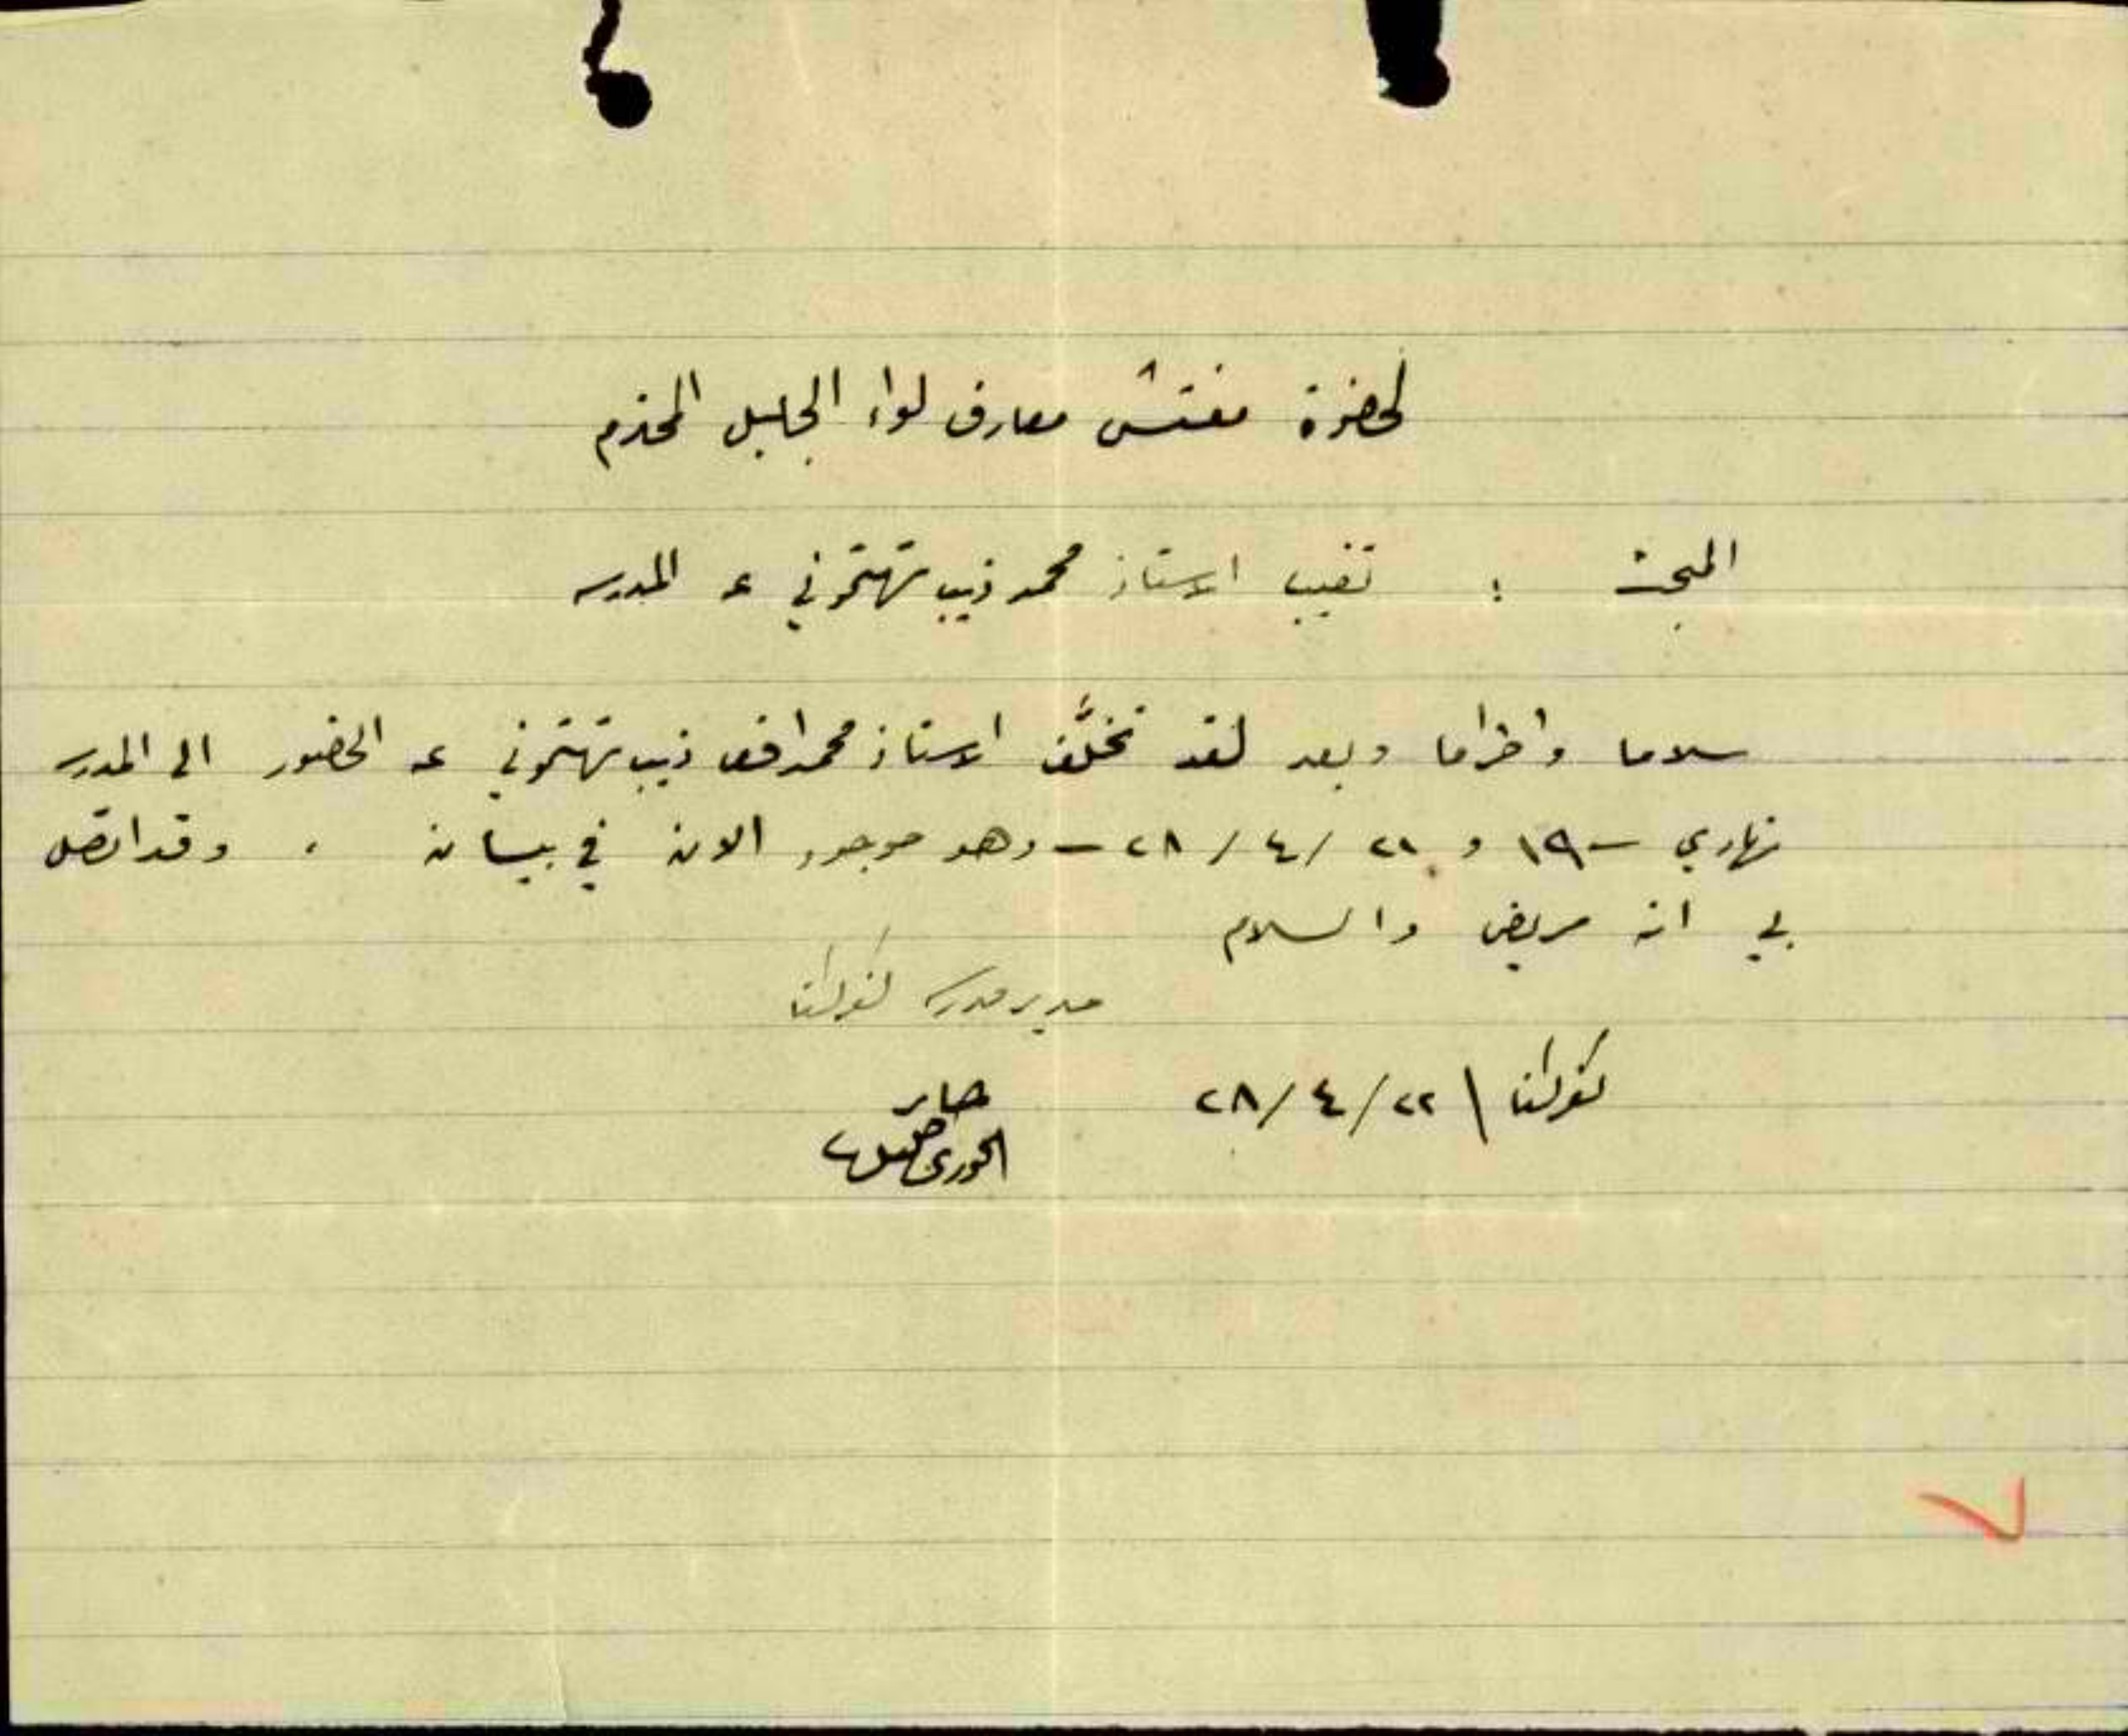 لحضرة مفتش معارف لواء الجليل المحترم
المبحث : تغيب الاستاذ محمد ذيب تهتموني عن المدرسه
سلاما واحتراما وبعد لقد تخلَّف الاستاذ محمد ذيب تهتموني عن الحضور الى المدرسه
نهاري – ١٩ و ٢١ / ٤ / ٢٨ – وهو موجود الان في بيسان . وقد اتصل
بي انه مريض والسلام
مدير مدرسه كفركنا
كفركنا \ ٢٢ / ٤ / ٢٨
جابر
الخوري